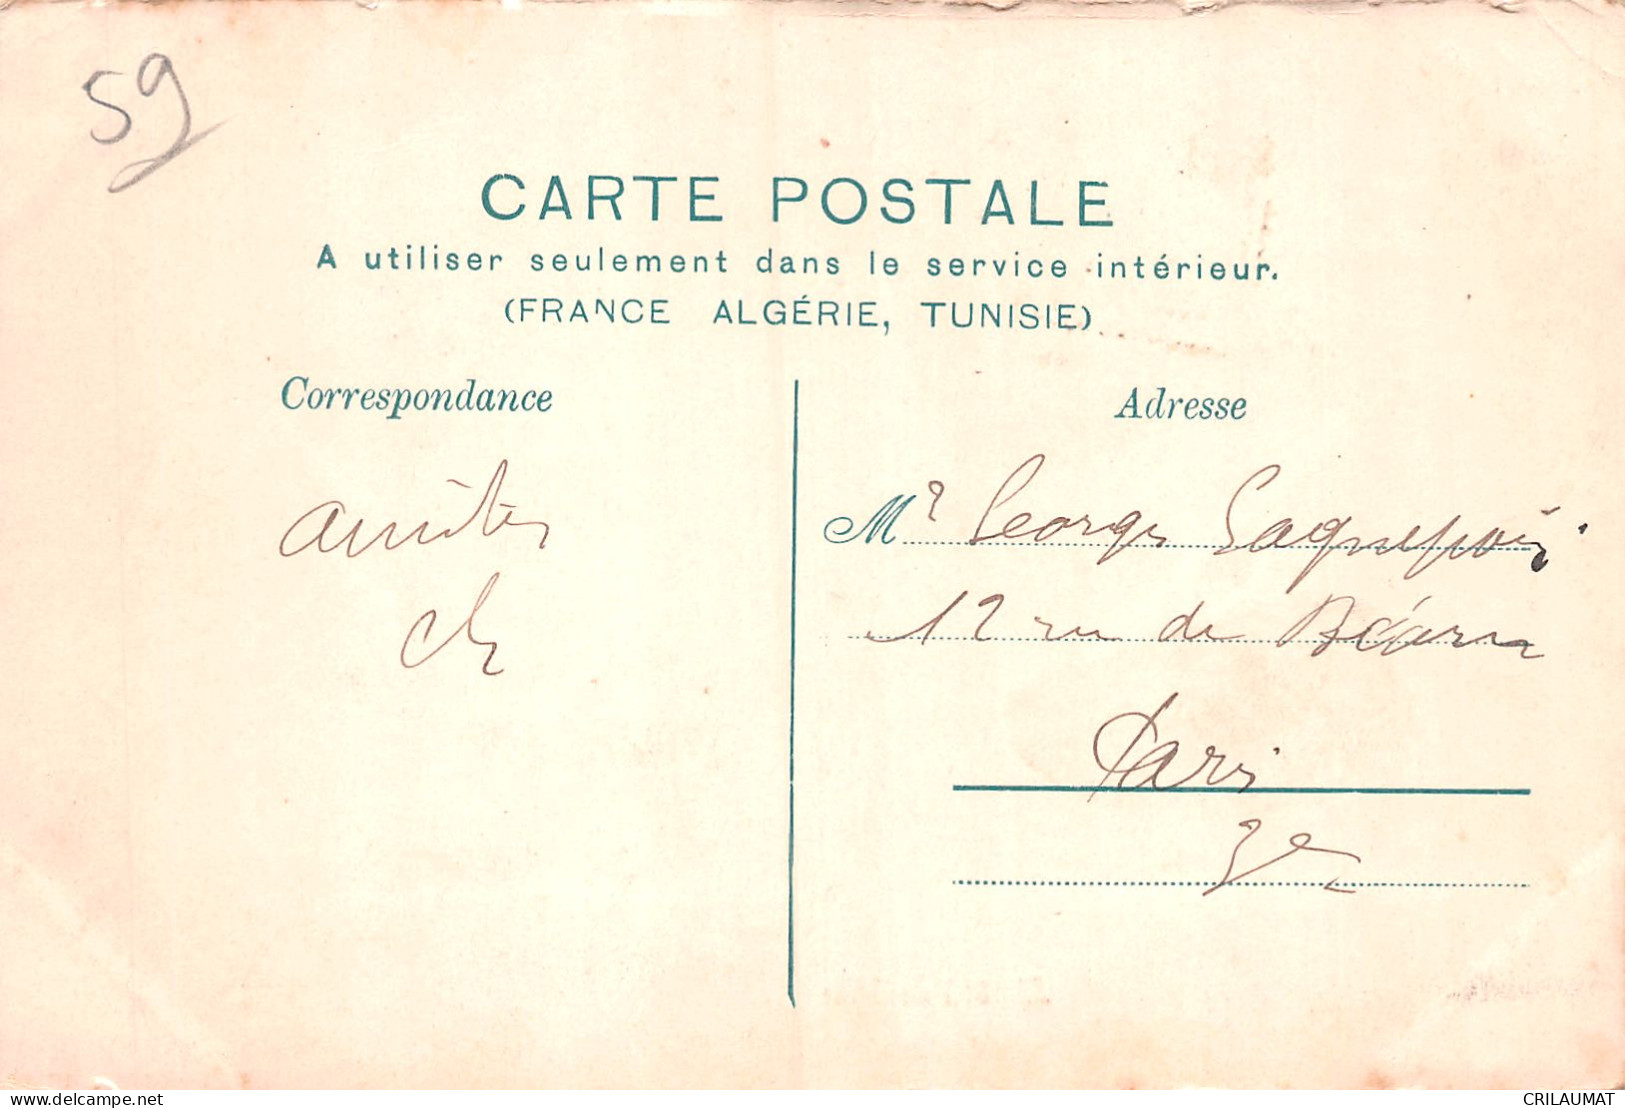 59
CARTE POSTALE
A utiliser seulement dans le service intérieur.
(FRANCE ALGÉRIE, TUNISIE)
Correspondance
Adresse
amitiés
Mr Georges
12 rue de Béarn
Paris
3e
www.delcampe.net
CRILAUMAT